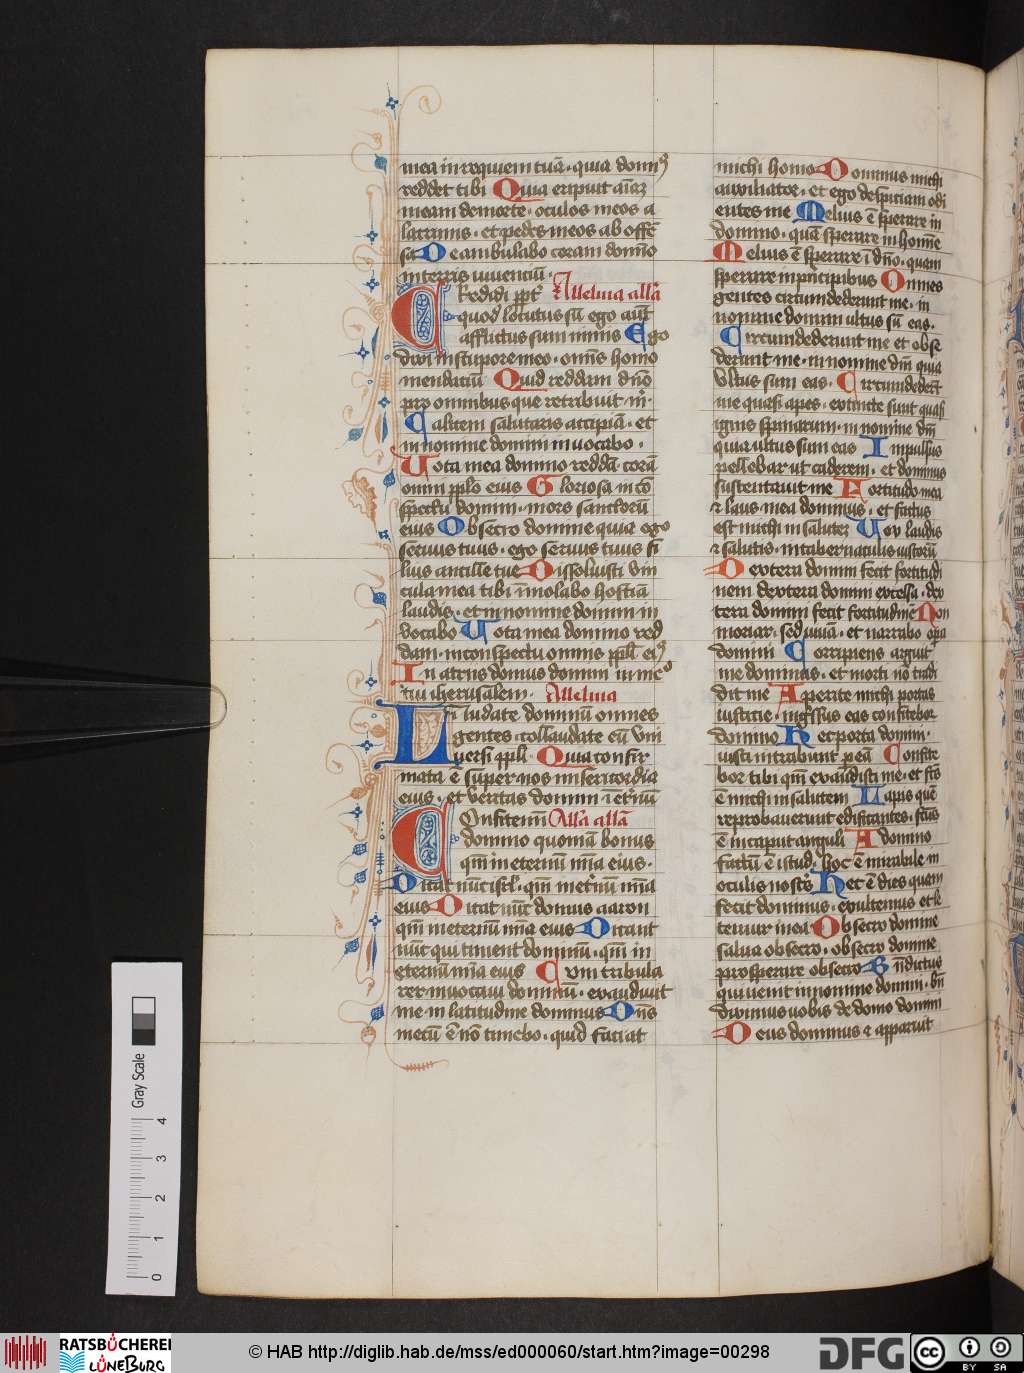 mea in requiem tuā · quia domin9
reddet tibi Quia eripuit aīaʒ
meam de morte · oculos meos a
lacrimis · et pedes meos ab offē
sa Deambulabo coram domīo
in terris viventiū ·
Credidi ꝓpt̄ Alleluia allā
quod locutus sū ego aūt
afflictus sum nimis Ego
dixi in stupore meo · om̄is homo
mendaciū Quid reddam dn̄o
pro omnibus que retribuit m̄ ·
Calicem salutaris accipiā · et
in nomine domini invocabo ·
Vota mea domino reddā corā
omni ppl̄o eius Gloriosa in cō
spectu domini · mors sanctorū
eius Obsecro domine quia ego
servus tuus · ego servus tuus fi
lius ancille tue Dissoluisti vin
cula mea tibi īmolabo hostiā
laudis · et in nomine domini in
vocabo Vota mea domino red
dam · in conspectu omnis ppl̄i ei9
In atriis domus domini in me
tui iherusalem · Alleluia
Laudate dominū omnes
gentes · collaudate eū vni
versi ppl̄i Quia confir
mata ē super nos misericordia
eius · et veritas domini ī et̄nū
Confitemī Allā allā
domino quoniā bonus
qm̄ in eternū mīa eius ·
Dicat nūc isrl̄ · qm̄ in et̄nū mīa
eius Dicat nūc domus aaron
qm̄ in eternū mīa eius Dicant
nūc qui timent dominū · qm̄ in
eternū mīa eius Cum tribula
rer invocavi dominū · exaudivit
me in latitudine dominus Dn̄s
mecū ē nō timebo · quid faciat
michi homo Dominus michi
auxiliator · et ego despiciam odi
entes me Melius ē sperare in
domino · quā sperare in homīe
Melius ē sperare ī dn̄o · quam
sperare in pn̄cipibus Omnes
gentes circumdederunt me · in
nomine domini ultus sū eas ·
Circumdederunt me et obse
derunt me · in nomine dn̄i quia
Vltus sum eas · Circumdeder̄t
me quasi apes · extincte sunt quasi
ignis spinarum · in nomine dn̄i
quia ultus sum eas Impulsus
pell̄ebar ut caderem · et dominus
sustentavit me Fortitudo mea
et laus mea dominus · et factus
est michi in salutez Vox laudis
et salutis · in tabernaculis iustorū
Dextera domini fecit fortitudi
nem dextera domini excelsa · dex
tera domini fecit fortitudinē Non
moriar · sed vivā · et narrabo opa
domini Corripiens arguit
me dominus · et morti nō tradi
dit me Aperite michi portas
iusticie · ingressus eas confitebor
domino Hec porta domini ·
iusti intrabunt p eā Confite
bor tibi qm̄ exaudisti me · et fc̄s
ē michi in salutem Lapis quē
reprobaverunt edificantes · fc̄us
ē in caput anguli A domino
factū ē istud · hoc ē mirabile in
oculis nostr̄s Hec ē dies quam
fecit dominus · exultemus et le
temur in ea Obsecro domine
salva obsecro · obsecro domine
prosperare obsecro Bn̄dictus
qui venit in nomine domini · bn̄
diximus vobis de domo domini
Deus dominus et apparuit
Gray Scale
4
3
2
1
0
RATSBÜCHEREI
LÜNEBURG
© HAB http://diglib.hab.de/mss/ed000060/start.htm?image=00298
DFG
cc
BY SA